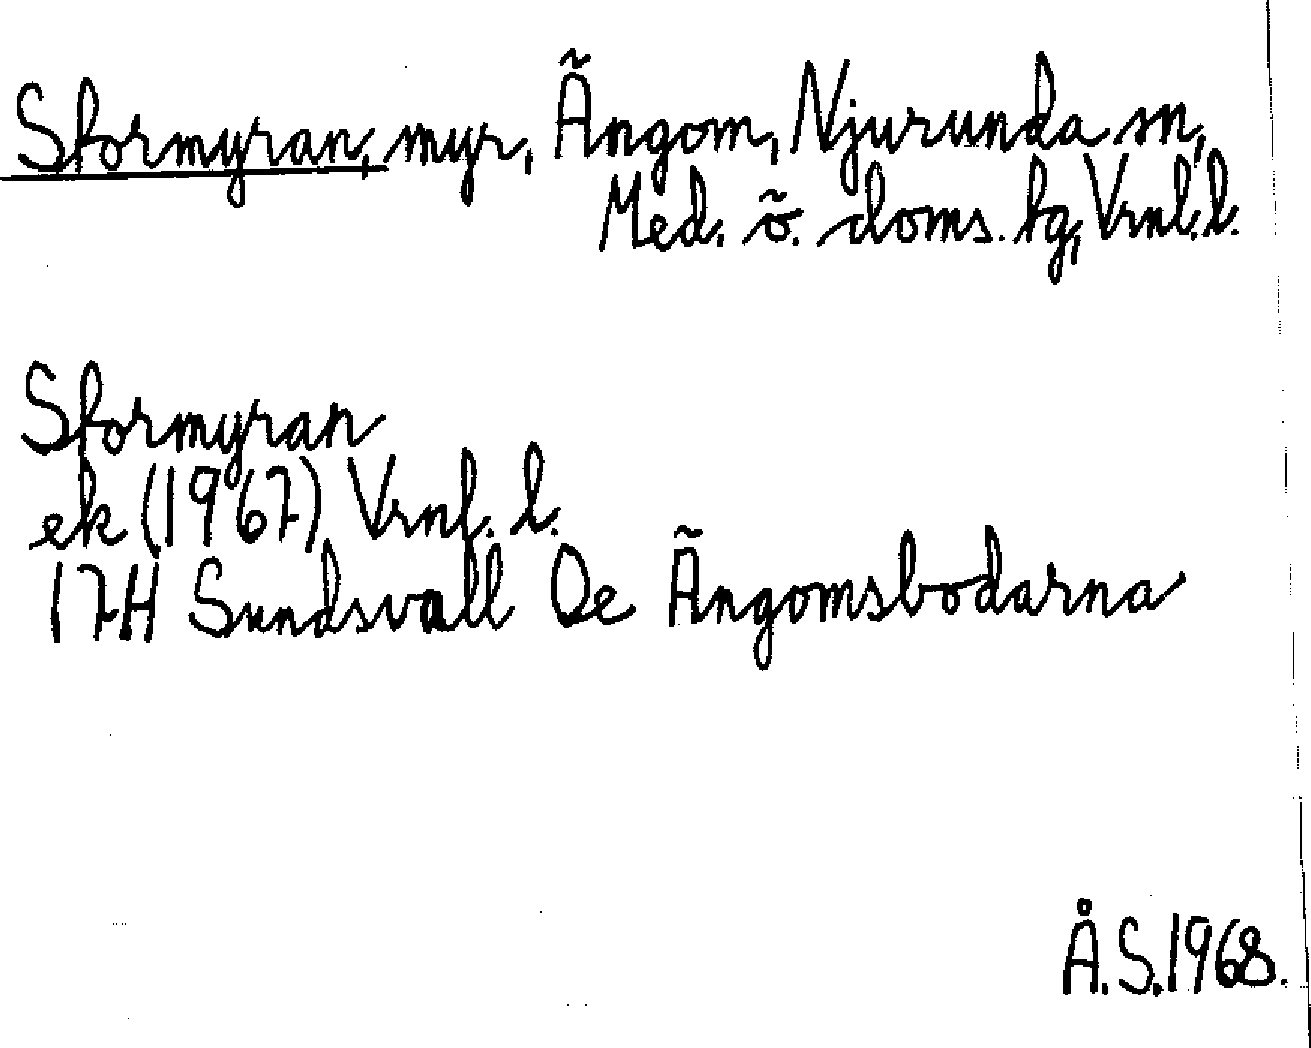 Stormyran, myr, Ängom, Njurunda sn,
Med. ö. doms. tg, Vrnl. l.
Stormyran
ek (1967) Vrnl. l.
17H Sundsvall Oe Ängomsbodarna
Å.S. 1968.